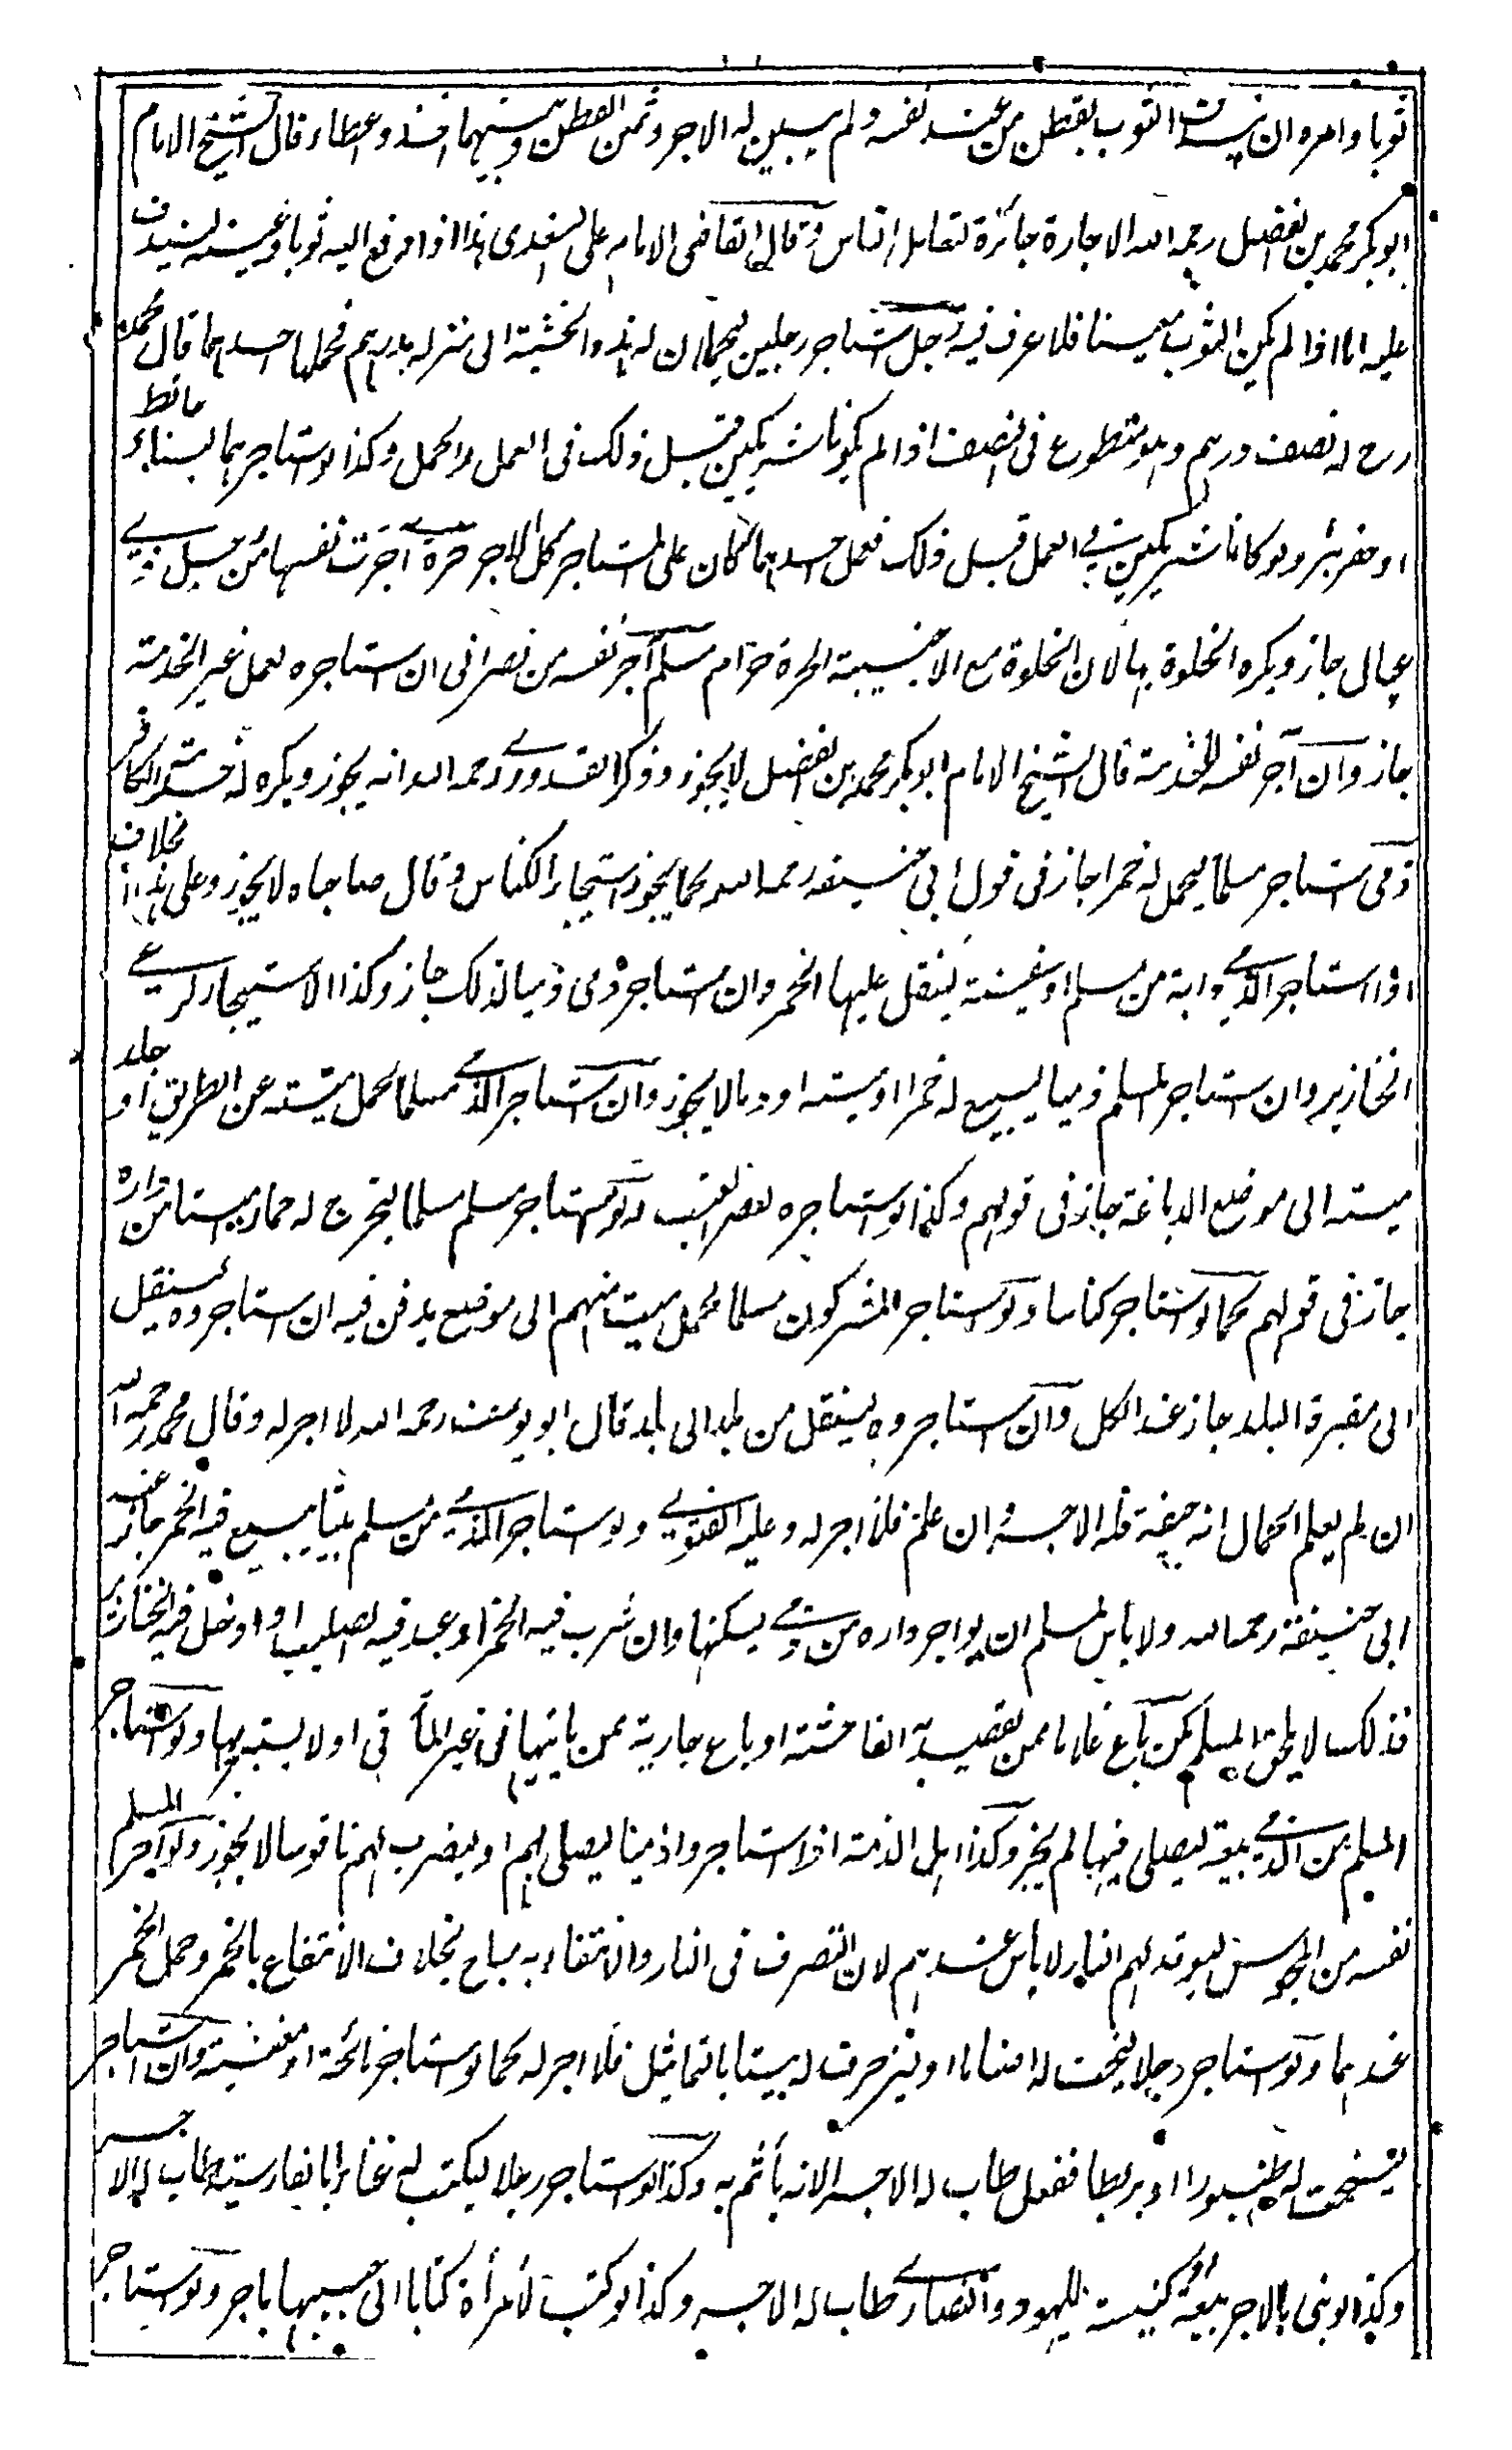 ثوبا وامره ان يندف الثوب بقطن من عند نفسه ولم يبين له الاجر وثمن القطن وبينهما اخذ وعطاء قال الشيخ الامام
ابو بكر محمد بن الفضل رحمه الله الاجارة جائزة لتعامل الناس وقال القاضى الامام على السغدى هذا اذا دفع اليه ثوبا وعينه ليندف
عليه اما اذا لم يكن الثوب معينا فلا عرف فيه رجل استاجر رجلين ليحملان له هذه الخشبة الى منزله بدرهم فحملها احدهما قال محمد
رح له نصف درهم وهو متطوع فى النصف اذا لم يكونا شريكين قبل ذلك فى العمل والحمل وكذا لو استاجرهما لبناء حائط
او حفر بئر ولو كانا شريكين فى العمل قبل ذلك فعمل احدهما كان على المستاجر كل الاجر حرة آجرت نفسها من رجل ذى
عيالى جاز ويكره الخلوة بها لان الخلوة مع الاجنبية الحرة حرام مسلم آجر نفسه من نصرانى ان استاجره لعمل غير الخدمة
جاز وان آجر نفسه للخدمة قال الشيخ الامام ابو بكر محمد بن الفضل لا يجوز وذكر القدورى رحمه الله انه يجوز ويكره له خدمة الكافر
ذمى استاجر مسلما ليحمل له خمرا جاز فى قول ابى حنيفة رحمه الله كما يجوز استيجار الكناس وقال صاحباه لا يجوز وعلى هذا الخلاف
اذا استاجر الذمى دابة من مسلم او سفينة لينقل عليها الخمر وان استاجر ذمى ذميا لذلك جاز وكذا الاستيجار لرعى
الخنازير وان استاجر المسلم ذميا ليبيع له خمرا او ميتة او دما لا يجوز وان استاجر الذمى مسلما لحمل ميتة عن الطريق او جلد
ميتة الى موضع الدباغة جاز فى قولهم وكذا لو استاجره لعصر العنب ولو استاجر مسلم مسلما ليخرج له حمارا ميتا من داره
جاز فى قولهم كما لو استاجر كناسا ولو استاجر المشركون مسلما لحمل ميت منهم الى موضع يدفن فيه ان استاجروه لينقل
الى مقبرة البلد جاز عند الكل وان استاجروه لينقل من بلد الى بلد قال ابو يوسف رحمه الله لا اجر له وقال محمد رحمه الله
ان لم يعلم الحمال انه جيفة فله الاجر وان علم فلا اجر له وعليه الفتوى ولو استاجر الذمى من مسلم بيتا يبيع فيه الخمر جاز عند
ابى حنيفة رحمه الله ولا باس لمسلم ان يواجر داره من ذمى يسكنها وان شرب فيه الخمر او عبد فيه الصليب او ادخل فيه الخنازير
فذلك لا يلحق المسلم كمن باع غلاما ممن يقصد به الفاحشة او باع جارية ممن ياتيها فى غير المأتى او لا يستبريها ولو استاجر
المسلم من الذمى بيعة ليصلى فيها لم يجز وكذا اهل الذمة اذا استاجروا ذميا ليصلى لهم او ليضرب لهم ناقوسا لا يجوز ولو آجر المسلم
نفسه من المجوس ليوقد لهم النار لا باس عندهم لان التصرف فى النار والانتفاع به مباح بخلاف الانتفاع بالخمر وحمل الخمر
عندهما ولو استاجر رجلا لينحت له اصناما او ليزخرف له بيتا بالتماثيل فلا اجر له كما لو استاجر نائحة او مغنية وان استاجر
لينحت له طنبورا او بربطا ففعل طاب له الاجر الا انه يأثم به وكذا لو استاجر رجلا ليكتب له غناء بالفارسية طاب له الاجر
وكذا لو بنى بالاجر بيعة او كنيسة لليهود والنصارى طاب له الاجر وكذا لو كتب لامرأة كتابا الى حبيبها باجر ولو استاجر